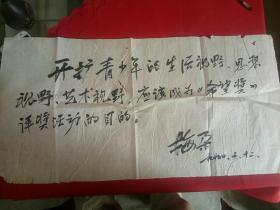 开扩青少年的生活视野、思想
视野、艺术视野，应该成为《希望奖》
评奖活动的目的。
梅朵